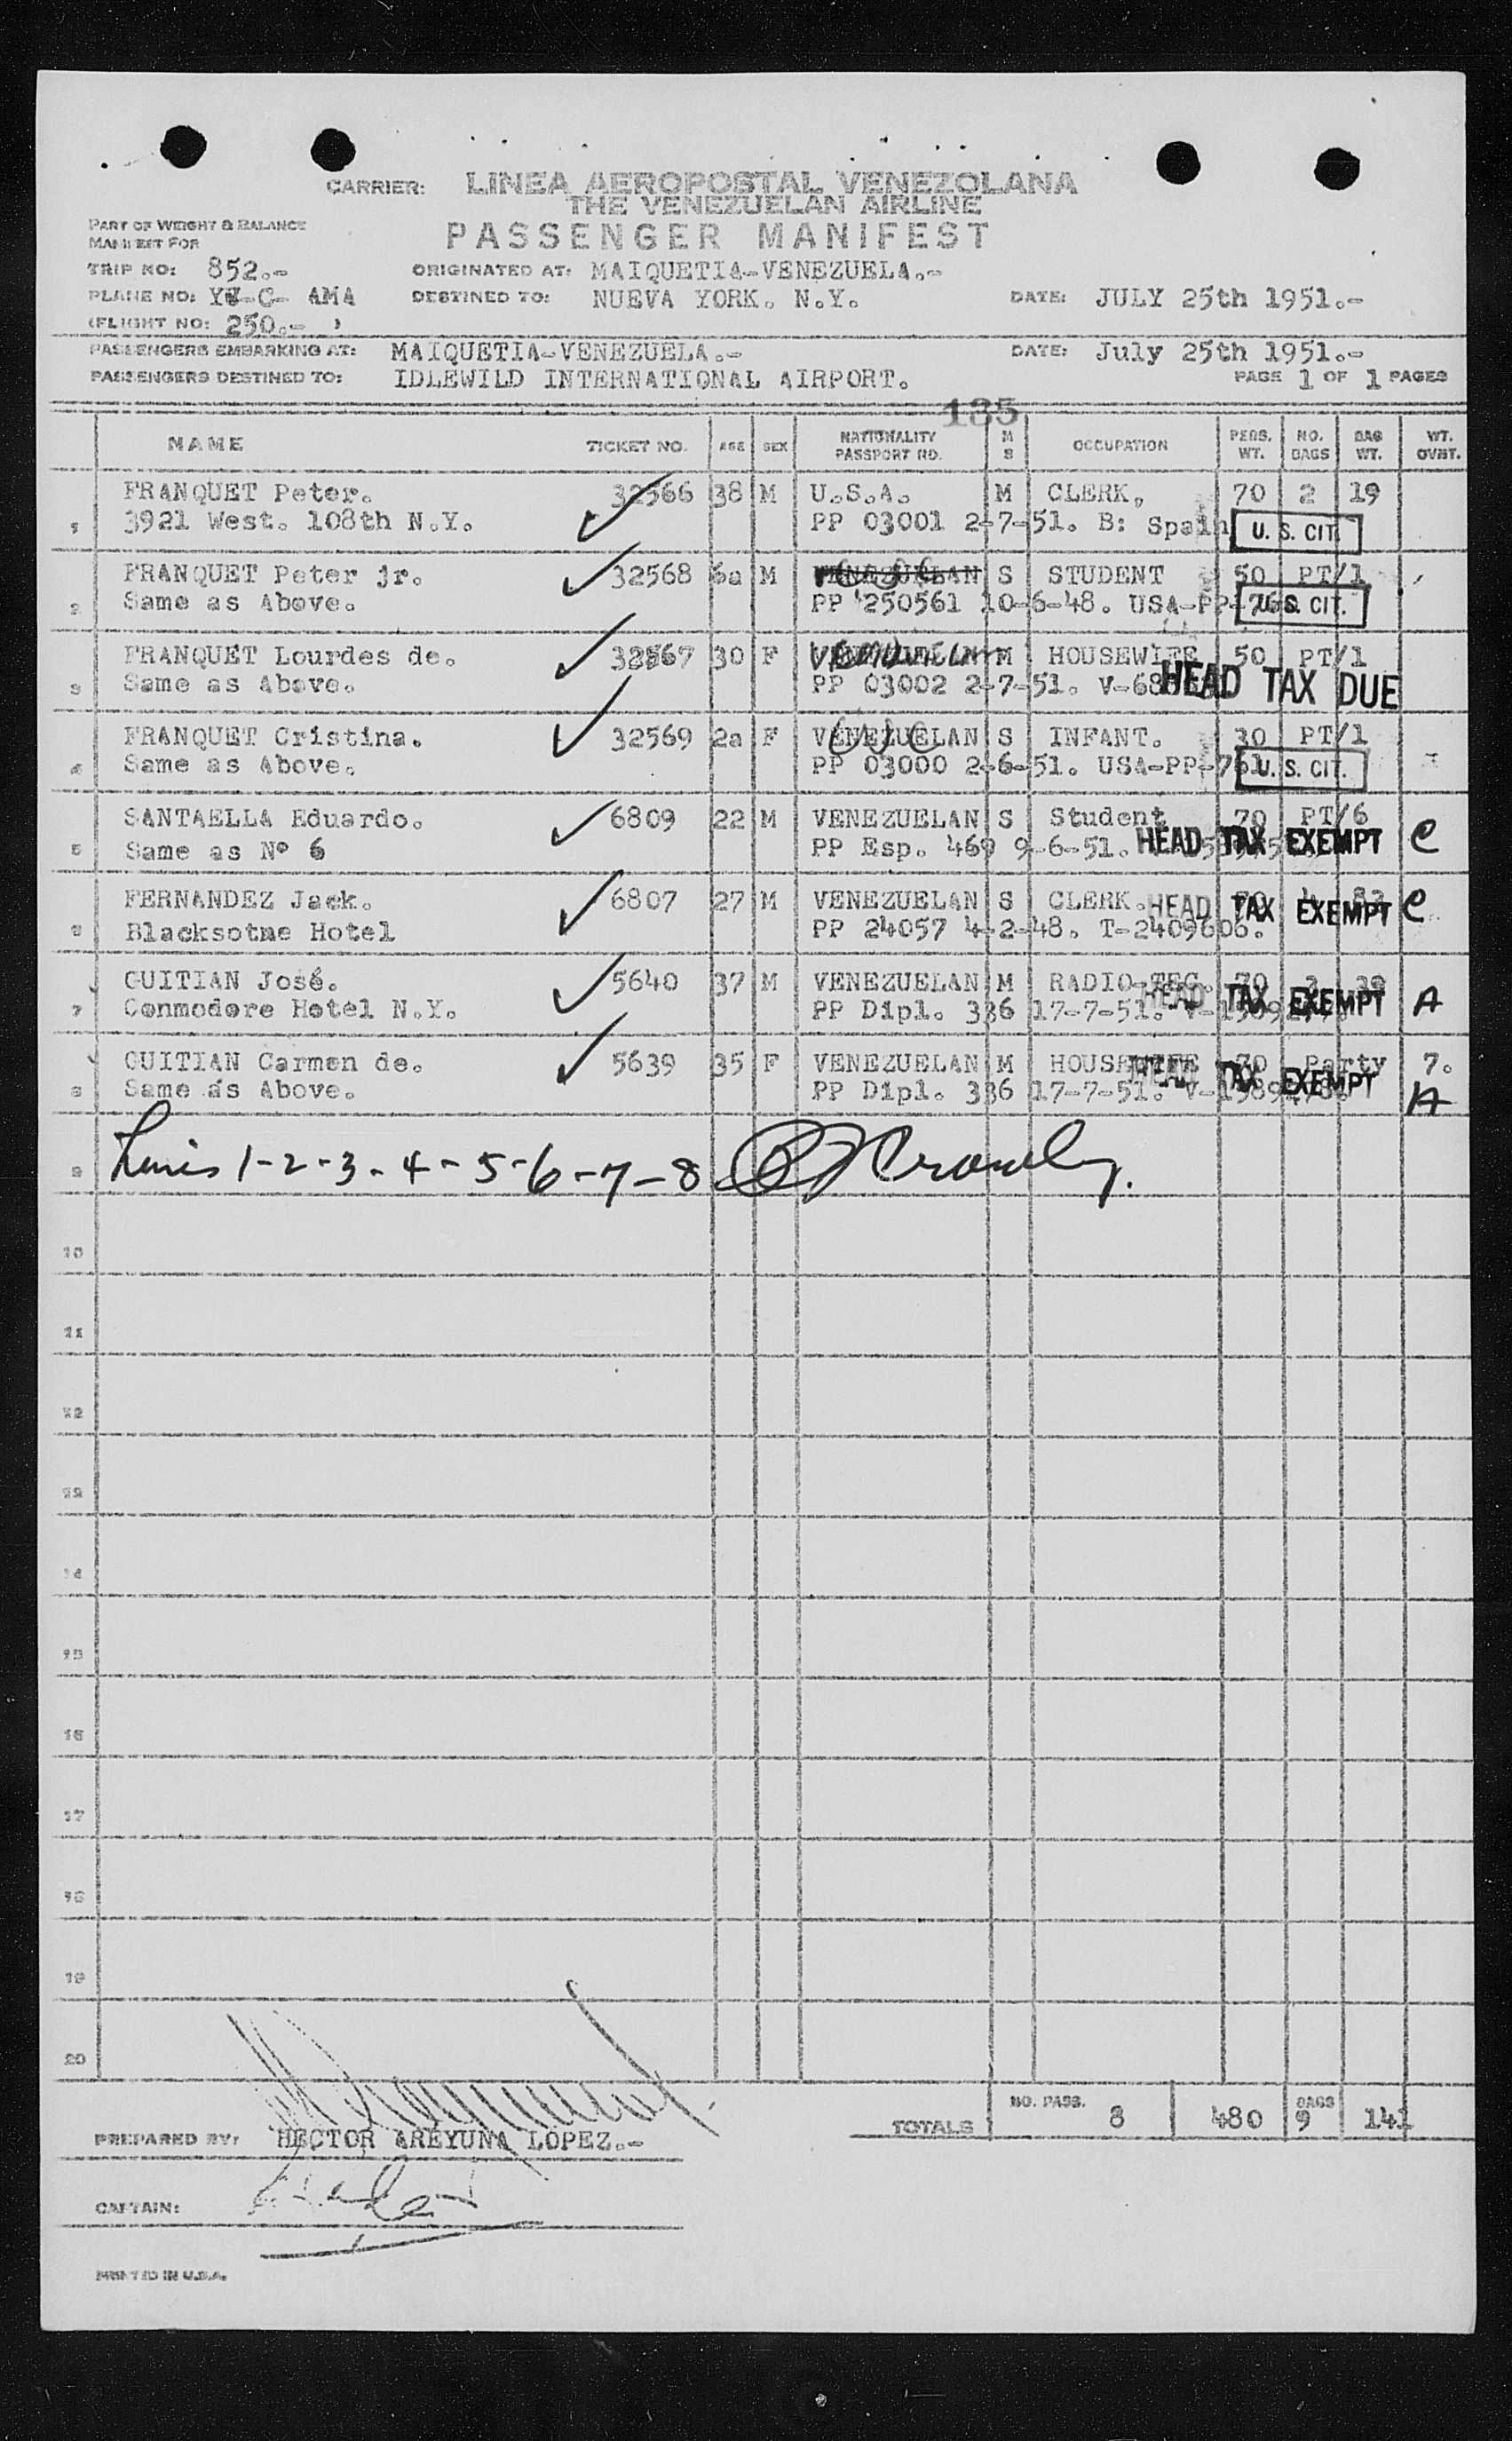 CARRIER: LINEA AEROPOSTAL VENEZOLANA
THE VENEZUELAN AIRLINE
PART OF WEIGHT & BALANCE
MANIFEST FOR
PASSENGER MANIFEST
TRIP NO: 852.- ORIGINATED AT: MAIQUETIA-VENEZUELA.-
PLANE NO: YV-C- AMA DESTINED TO: NUEVA YORK. N.Y. DATE: JULY 25th 1951.-
(FLIGHT NO: 250.- )
PASSENGERS EMBARKING AT: MAIQUETIA-VENEZUELA.- DATE: July 25th 1951.-
PASSENGERS DESTINED TO: IDLEWILD INTERNATIONAL AIRPORT. PAGE 1 OF 1 PAGES
135
NAME TICKET NO. AGE SEX NATIONALITY PASSPORT NO. M S OCCUPATION PERS. WT. NO. BAGS BAG WT. WT. OVBT.
FRANQUET Peter. 32566 38 M U.S.A. M CLERK, 70 2 19
1 3921 West. 108th N.Y. PP 03001 2-7-51. B: Spain U. S. CIT.
FRANQUET Peter jr. 32568 6a M VENEZUELAN S STUDENT 50 PT/1
2 Same as Above. PP 250561 10-6-48. USA-PP- U. S. CIT.
FRANQUET Lourdes de. 32567 30 F M HOUSEWIFE 50 PT/1
3 Same as Above. PP 03002 2-7-51. HEAD TAX DUE
FRANQUET Cristina. 32569 2a F VENEZUELAN S INFANT. 30 PT/1
4 Same as Above. PP 03000 2-6-51. USA-PP-761 U. S. CIT.
SANTAELLA Eduardo. 6809 22 M VENEZUELAN S Student 70 PT/6
5 Same as Nº 6 PP Esp. 469 9-6-51. HEAD TAX EXEMPT C
FERNANDEZ Jack. 6807 27 M VENEZUELAN S CLERK. HEAD TAX EXEMPT C
6 Blacksotne Hotel PP 24057 4-2-48. T-2409606.
GUITIAN José. 5640 37 M VENEZUELAN M RADIO-TEC. 70 3 39
7 Conmodore Hotel N.Y. PP Dipl. 336 17-7-51. HEAD TAX EXEMPT A
GUITIAN Carmen de. 5639 35 F VENEZUELAN M HOUSEWIFE 70 Party 7.
8 Same as Above. PP Dipl. 336 17-7-51. HEAD TAX EXEMPT A
9 Lines 1-2-3-4-5-6-7-8 Crowley.
10
11
12
13
14
15
16
17
18
19
20
TOTALS NO. PASS. 8 480 BAGS 9 141
PREPARED BY: HECTOR AREYUNA LOPEZ.-
CAPTAIN:
PRINTED IN U.S.A.